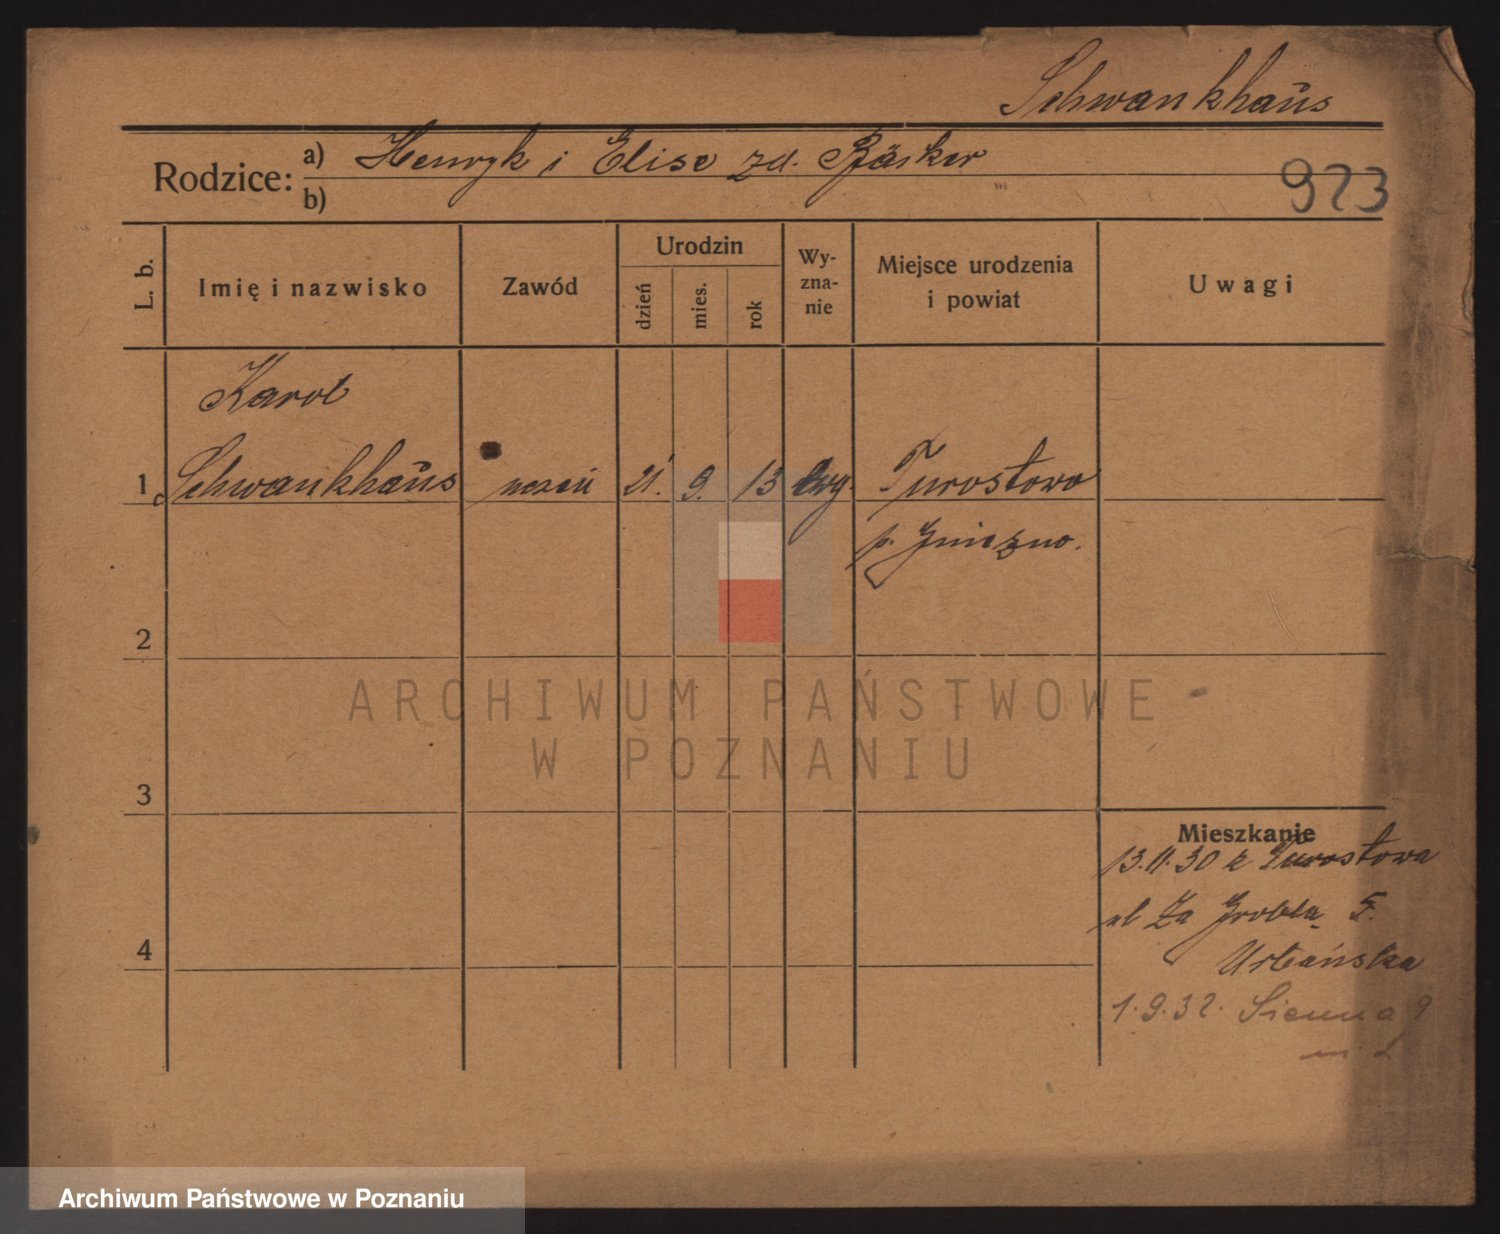 Schwankhaus
Rodzice: a) Henryk i Elise zd.
b)
923
L. b.
Imię i nazwisko
Zawód
Urodzin
dzień
mies.
rok
Wy-
zna-
nie
Miejsce urodzenia
i powiat
Uwagi
Karol
1 Schwankhaus uczeń 21. 9. 13 ewg. Turostowo
p. Gniezno.
2
ARCHIWUM PAŃSTWOWE
W POZNANIU
3
Mieszkanie
13.11.30 z Turostowa
ul Za Groblą 5.
Urbańska
4
1.9.32. Sienna 9
Archiwum Państwowe w Poznaniu